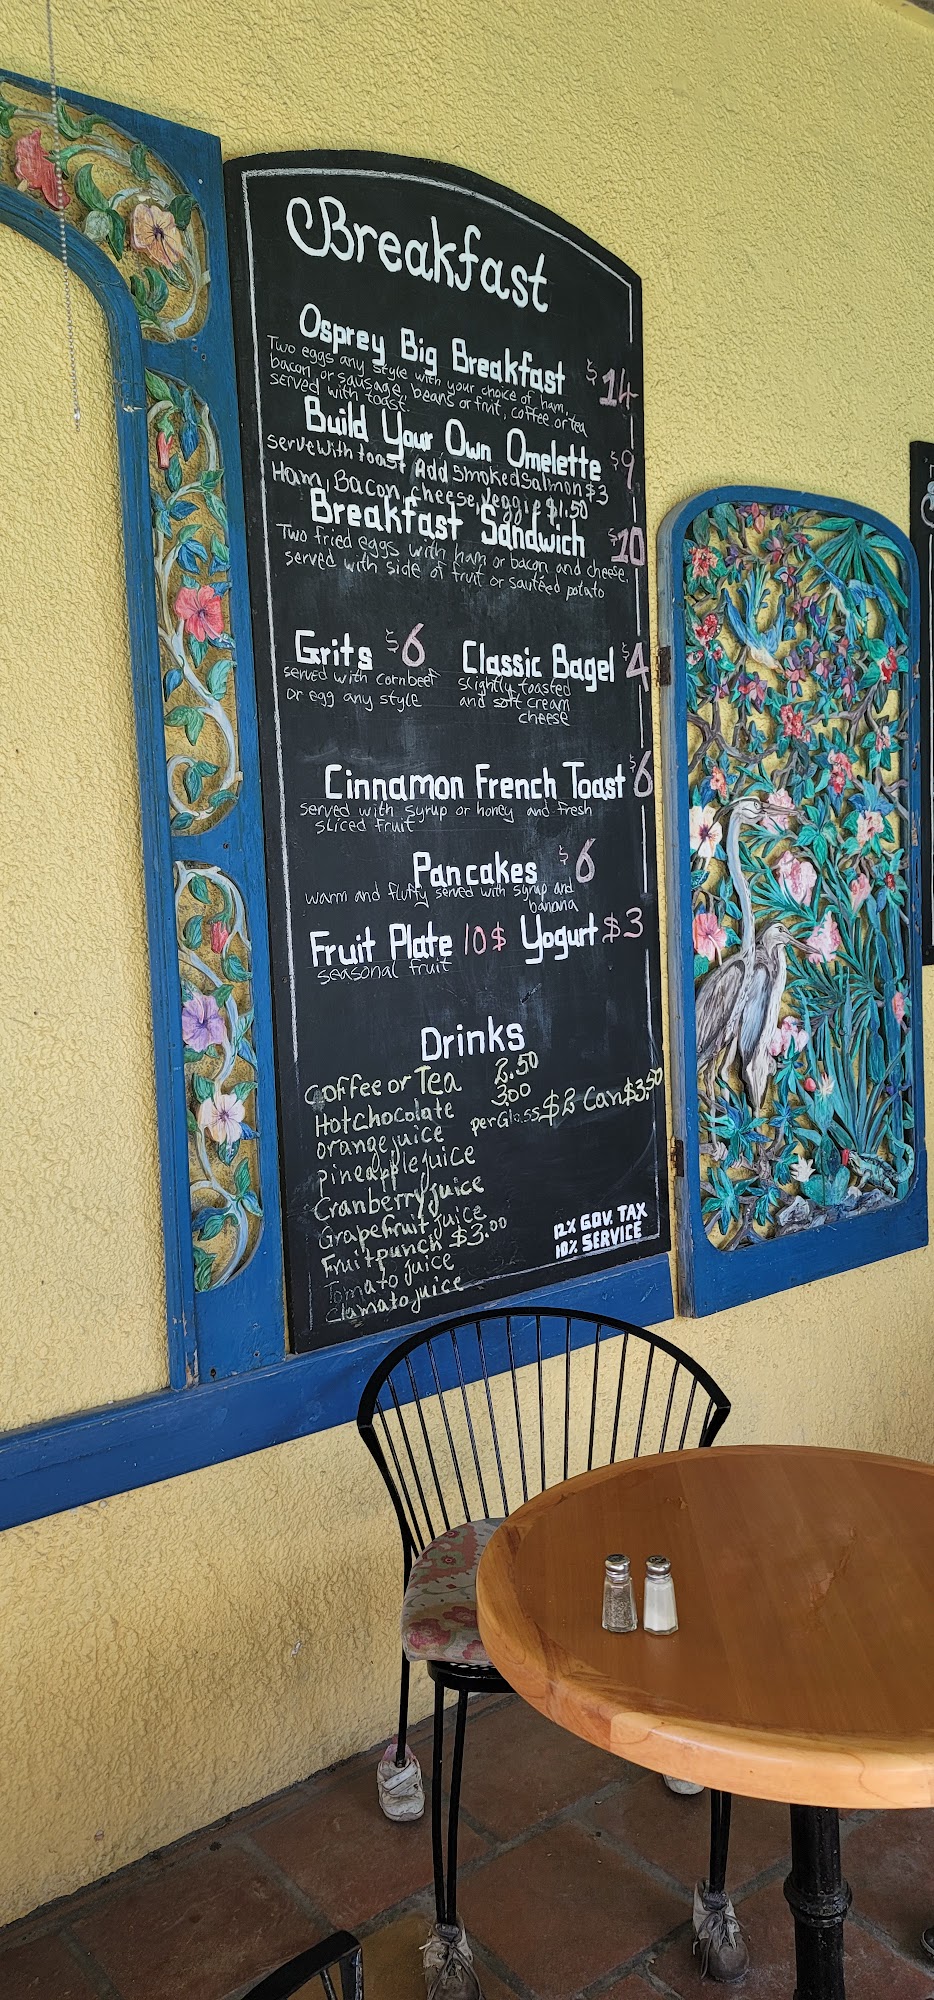 Breakfast
Osprey Big Breakfast $14
Two eggs any style with your choice of ham,
bacon, or sausage, beans or fruit, coffee or tea
served with toast.
Build Your Own Omelette $9
Serve with toast Add Smoked Salmon $3
Ham, Bacon, cheese, Veggie $1.50
Breakfast Sandwich $10
Two fried eggs with ham or bacon and cheese,
served with side of fruit or sautéed potato
Grits $6
served with cornbeef
or egg any style
Classic Bagel $4
slightly toasted
and soft cream
cheese
Cinnamon French Toast $6
served with syrup or honey and fresh
sliced fruit
Pancakes $6
warm and fluffy served with syrup and
banana
Fruit Plate 10$ Yogurt $3
seasonal fruit
Drinks
Coffee or Tea 2.50
Hot Chocolate 3.00
orange juice per Glass $2 Can $3.50
pineapple juice
Cranberry juice
Grapefruit juice
Fruit punch $3.00
Tomato juice
Clamato juice
12% GOV. TAX
10% SERVICE